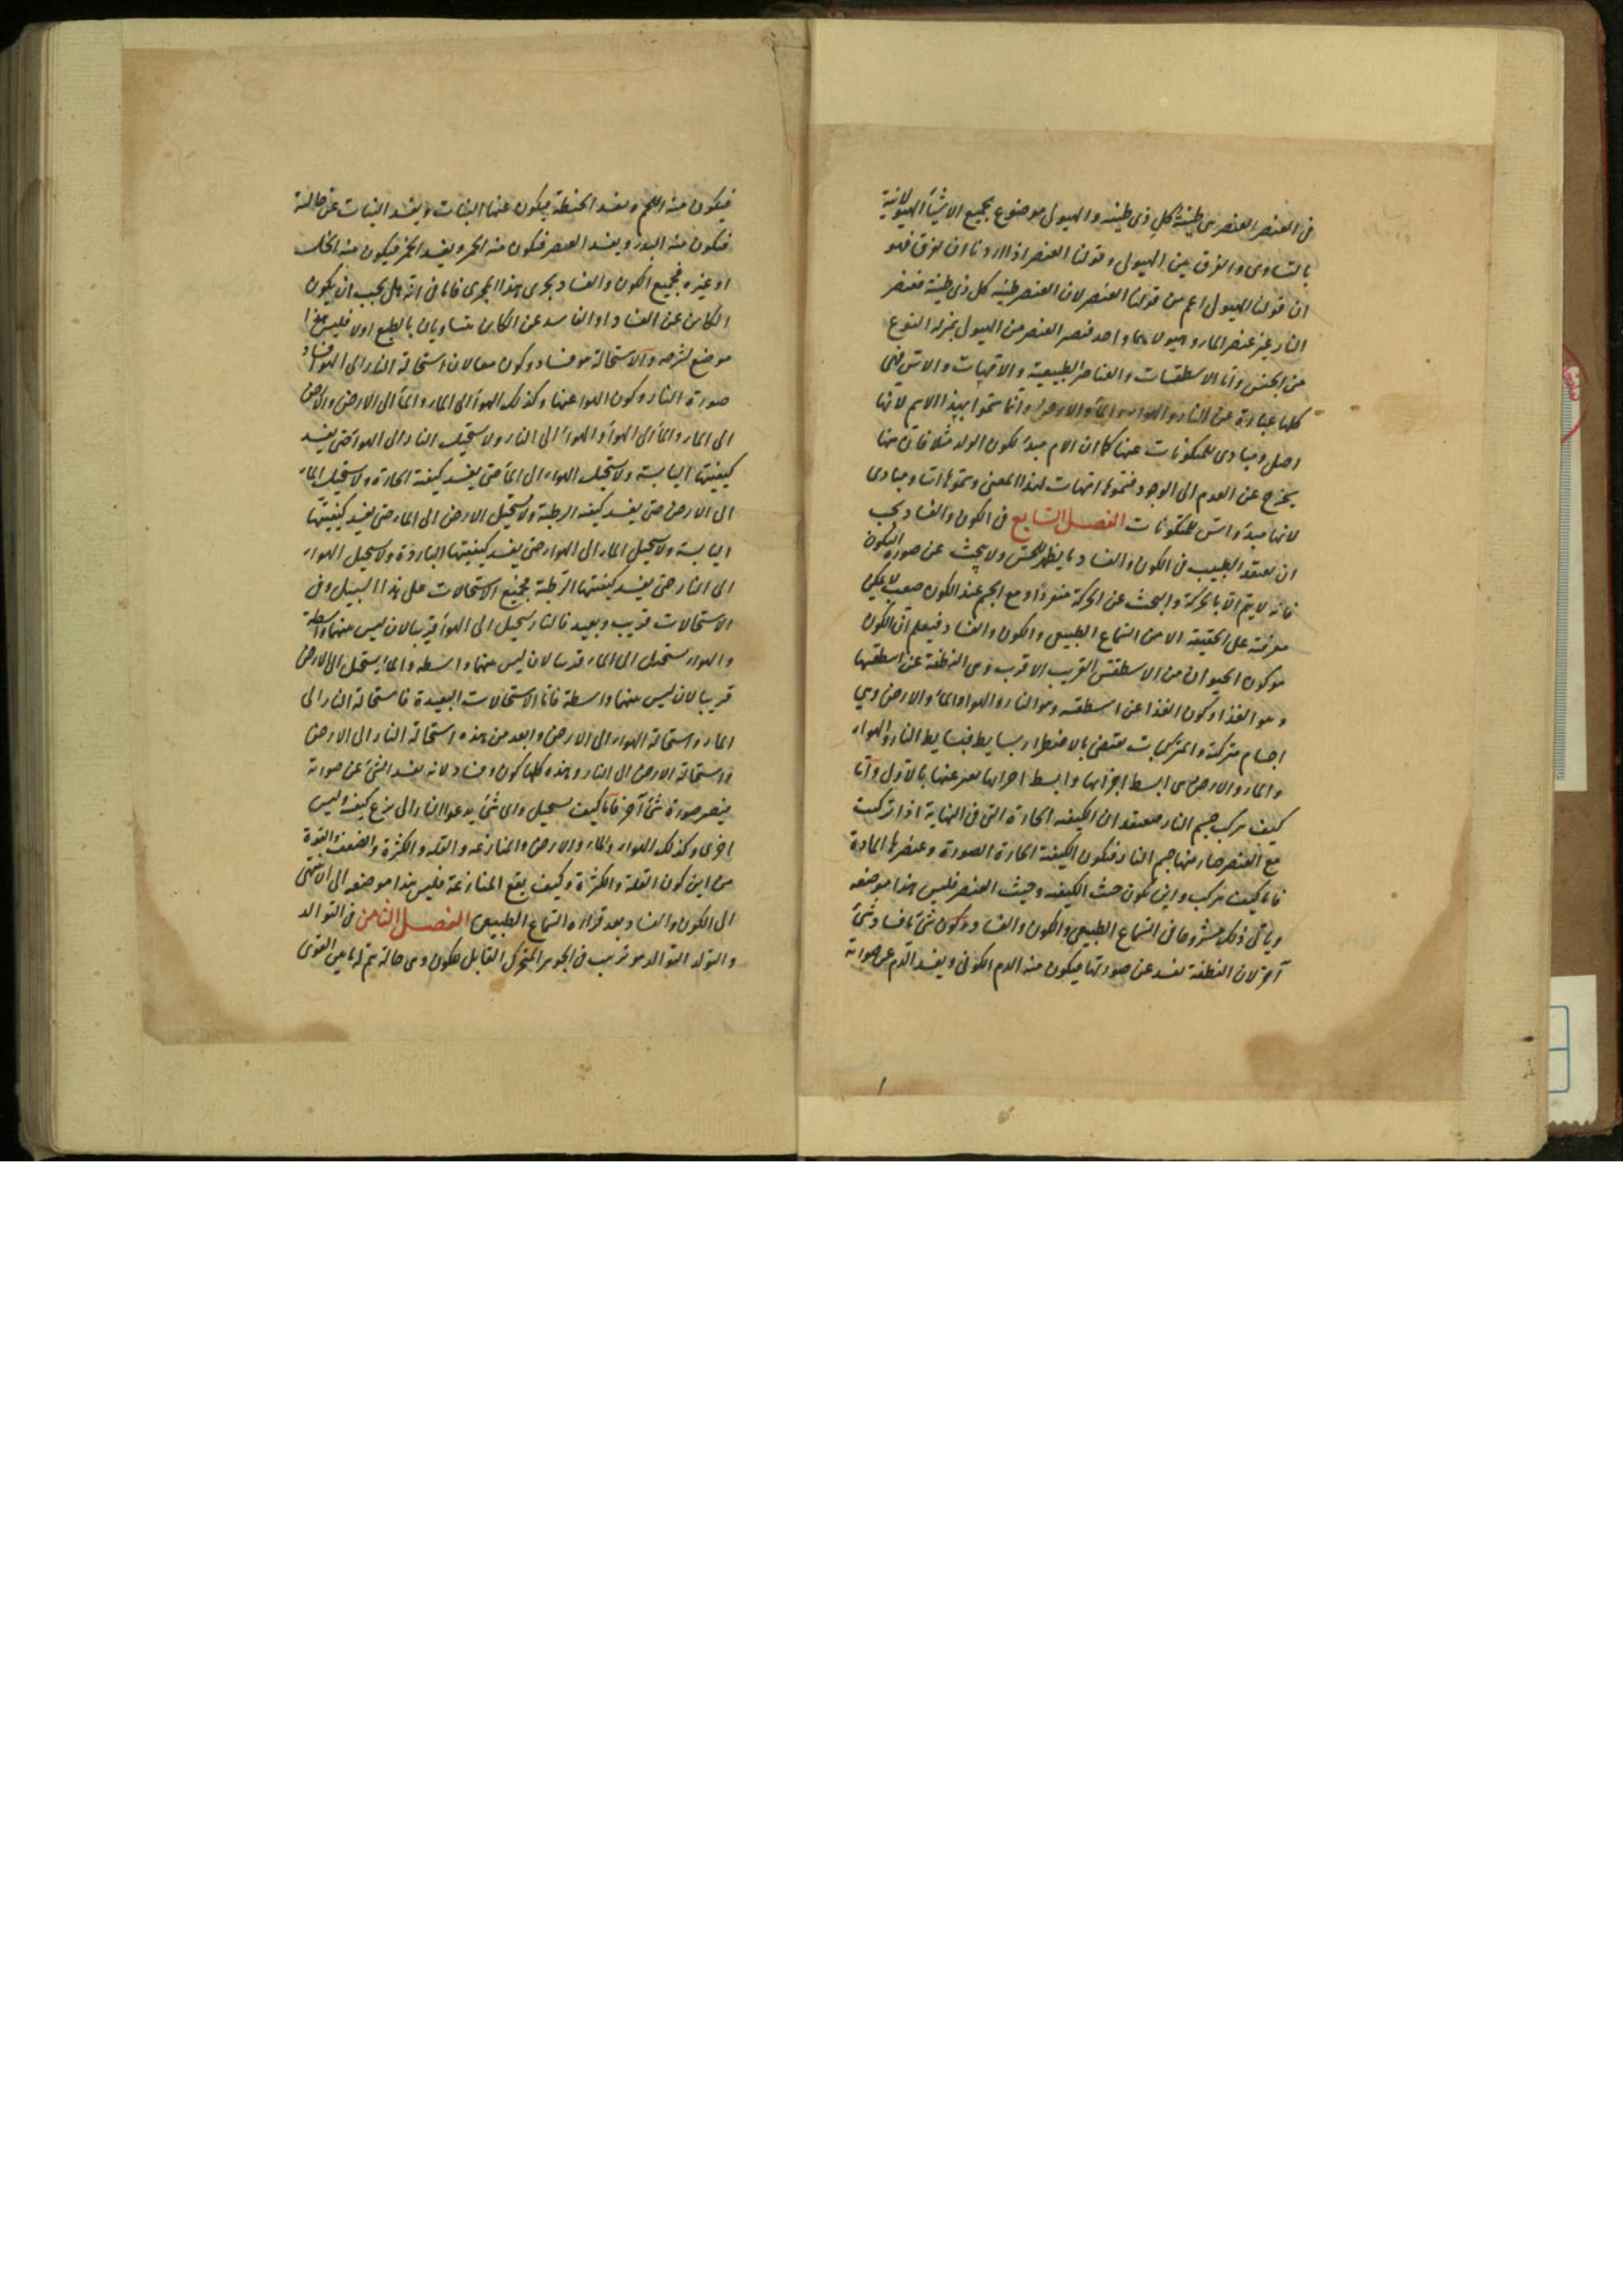 في العنصر العنصر هي طينة كل ذي طينة والهيولى موضوع لجميع الاشياء الهيولانية
بالتساوي والفرق بين الهيولى وقولنا العنصر اذا اردنا ان نفرق فهو
ان قولنا الهيولى اعم من قولنا العنصر لان العنصر طينة كل ذي طينة فعنصر
النار غير عنصر الماء وهيولاهما واحد فنصير العنصر من الهيولى بمنزلة النوع
من الجنس واما الاسطقسات والعناصر الطبيعية والامهات والاس فهي
كلها عبارة عن النار والهواء والماء والارض وانما سموا بهذا الاسم لانها
اصل ومبادى للمكونات عنها كما ان الام مبدء لكون الولد مثلا فان منها
يخرج عن العدم الى الوجود فسموها امهات لهذا المعنى وسموها اسا ومبادى
لانها مبدء واس للمتكونات الفصل السابع في الكون والفساد يجب
ان يعتقد الطبيب في الكون والفساد ما يظهر للحس ولا يبحث عن صورة التكون
فانه لا يتم الا بالحركة والبحث عن الحركة منفردا ومع الجسم عند الكون صعب لا يمكن
معرفته على الحقيقة الا من السماع الطبيعي والكون والفساد فيعلم ان الكون
هو كون الحيوان من الاسطقس القريب الاقرب وهي النطفة عن اسطقسها
وهو الغذا وكون الغذا عن اسطقسه وهو النار والهواء والماء والارض وهي
اجسام مركبة والمركبات يقتضي بالاضطرار بسايط فبسايط النار والهواء
والماء والارض هي ابسط اجزائها وابسط اجزائها يعبر عنها بالاول واما
كيف تركب جسم النار فيعتقد ان الكيفية الحارة التي في النهاية اذا تركبت
مع العنصر صار منها جسم النار فتكون الكيفية الحارة الصورة وعنصرها المادة
فاما كيف تركب واين تكون حيث الكيفية وحيث العنصر فليس هذا موضعه
وياتي ذلك مشروحا في السماع الطبيعي والكون والفساد وكون شئ ما فساد شئ
آخر لان النطفة تفسد عن صورتها فيكون منه الدم الكوني ويفسد الدم عن صورته
فيكون منه اللحم وتفسد الحنطة فيكون عنها النبات ويفسد النبات عن حالته
فيكون منه البذر ويفسد العصير فيكون منه الخمر ويفسد الخمر فيكون منه الخل
او غيره فجميع الكون والفساد يجري هذا المجرى فاما في انه هل يجب ان يكون
الكاين عن الفساد او الفاسد عن الكاين متساويان بالطبع اولا فليس هذا
موضع شرحه والاستحالة هو فساد وكون معا لان استحالة النار الى الهواء فساد
صورة النار وكون الهواء عنها وكذلك الهواء الى الماء والماء الى الارض والارض
الى الماء والماء الى الهواء والهواء الى النار ولا تستحيل النار الى الهواء حتى يفسد
كيفيتها اليابسة ولا يستحيل الهواء الى الماء حتى يفسد كيفيته الحارة ولا يستحيل الماء
الى الارض حتى يفسد كيفيته الرطبة ولا تستحيل الارض الى الماء حتى يفسد كيفيتها
اليابسة ولا يستحيل الماء الى الهواء حتى يفسد كيفيتها الباردة ولا يستحيل الهواء
الى النار حتى يفسد كيفيتها الرطبة فجميع الاستحالات على هذا السبيل وفي
الاستحالات قريب وبعيد فالنار تستحيل الى الهواء قريبا لان ليس بينهما واسطة
والهواء يستحيل الى الماء قريبا لان ليس بينهما واسطة والماء يستحيل الى الارض
قريبا لان ليس بينهما واسطة فاما الاستحالات البعيدة فاستحالة النار الى
الماء واستحالة الهواء الى الارض وابعد من هذه استحالة النار الى الارض
واستحالة الارض الى النار وهذه كلها كون وفساد لانه يفسد الشئ عن صورته
فيصير صورة شئ آخر فاما كيف يستحيل واي شئ يدعو النار الى نزع كيفية ولبس
اخرى وكذلك الهواء والماء والارض والمنازعة والقلة والكثرة والضعف والقوة
من اين كون القلة والكثرة وكيف يقع المنازعة فليس هذا موضعه الى ان ننتهي
الى الكون والفساد بعد قراءة السماع الطبيعي الفصل الثامن في التوالد
والتولد التوالد هو ترتيب في الجوهر المتحرك القابل للكون وهي حالة يتم لها بين القوى